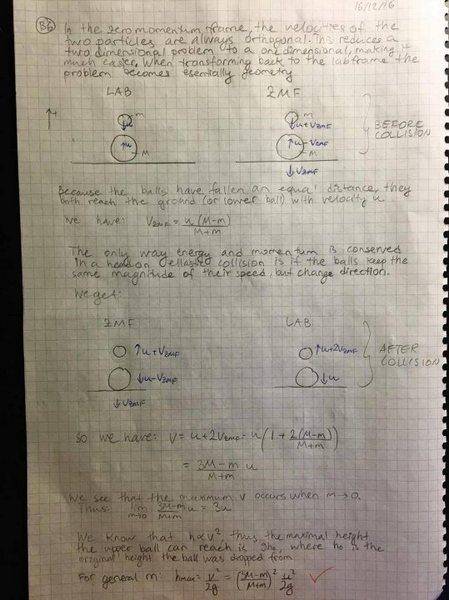 16/12/16
B6 In the zeromomentum frame, the velocities of the
two particles are always orthogonal. This reduces a
two dimensional problem to a one dimensional, making it
much easier. When transforming back to the lab frame the
problem becomes esentially geometry
LAB ZMF
m m
u u+VZMF
u u-VZMF
M M
VZMF
BEFORE
COLLISION
Because the balls have fallen an equal distance, they
both reach the ground (or lower ball) with velocity u
We have: VZMF = u(M-m)/M+m
The only way energy and momentum is conserved
in a head on ellastic collision is if the balls keep the
same magnitude of their speed, but change direction.
We get:
ZMF LAB
↑u+VZMF ↑u+2VZMF
↓u-VZMF ↓u
↓VZMF
AFTER
COLLISION
So we have: V = u+2VZMF = u(1+2(M-m)/M+m)
= 3M-m/M+m u
We see that the maximum v occurs when m→0.
Thus: lim m→0 3M-m/M+m u = 3u
We know that h∝v², thus the maximal height
the upper ball can reach is 9h₀, where h₀ is the
original height the ball was dropped from.
For general m: hmax = v²/2g = (3M-m/M+m)² u²/2g ✓